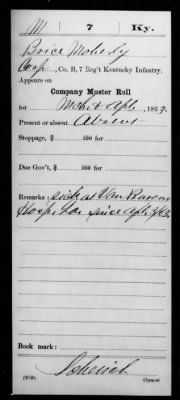 M | 7 | Ky.
Brice Moberly
Corp, Co. B, 7 Reg't Kentucky Infantry.
Appears on
Company Muster Roll
for Mch & Apl, 1863.
Present or absent Absent
Stoppage, $ 100 for
Due Gov't, $ 100 for
Remarks: sick at Van Buren
Hospital since Apl 2/63.
Book mark:
(858)
Copyist.